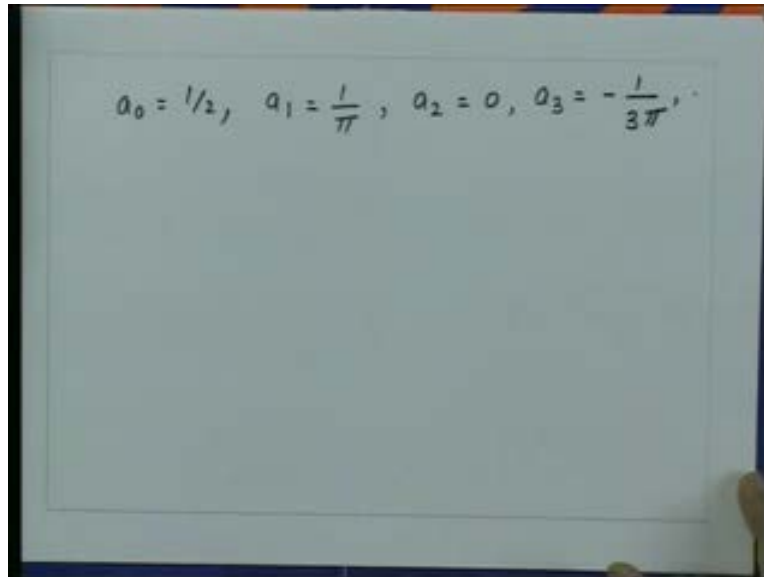 a₀ = 1/2, a₁ = 1/π, a₂ = 0, a₃ = - 1/3π, .